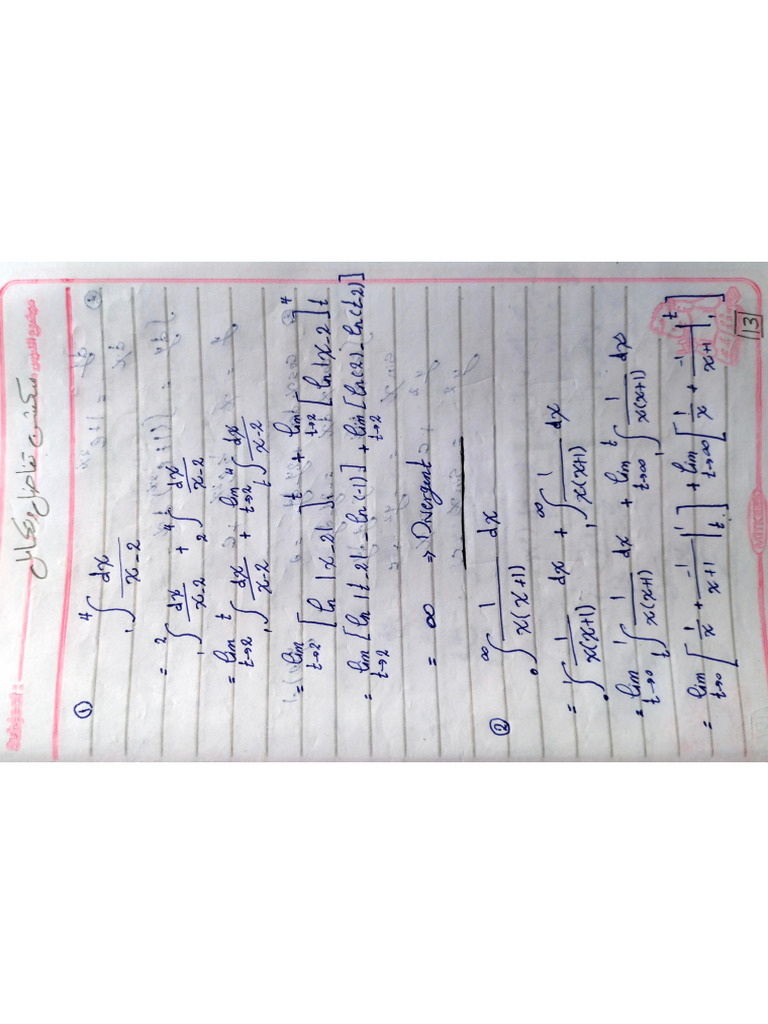 Subject:
سكشن تفاضل وتكامل
①
∫₁⁴ dx/(x-2)
= ∫₁² dx/(x-2) + ∫₂⁴ dx/(x-2)
= lim t→2 ∫₁ᵗ dx/(x-2) + lim t→2 ∫ₜ⁴ dx/(x-2)
= lim t→2 [ln |x-2|]₁ᵗ + lim t→2 [ln |x-2|]ₜ⁴
= lim t→2 [ln |t-2| - ln(-1)] + lim t→2 [ln(2) - ln(t-2)]
= ∞ ⇒ Divergent
② ∫₀^∞ 1/(x(x+1)) dx
= ∫₀¹ 1/(x(x+1)) dx + ∫₁^∞ 1/(x(x+1)) dx
= lim t→0 ∫ₜ¹ 1/(x(x+1)) dx + lim t→∞ ∫₁ᵗ 1/(x(x+1)) dx
= lim t→0 [1/x + -1/(x+1) |ₜ¹] + lim t→∞ [1/x + -1/(x+1) |₁ᵗ]
13